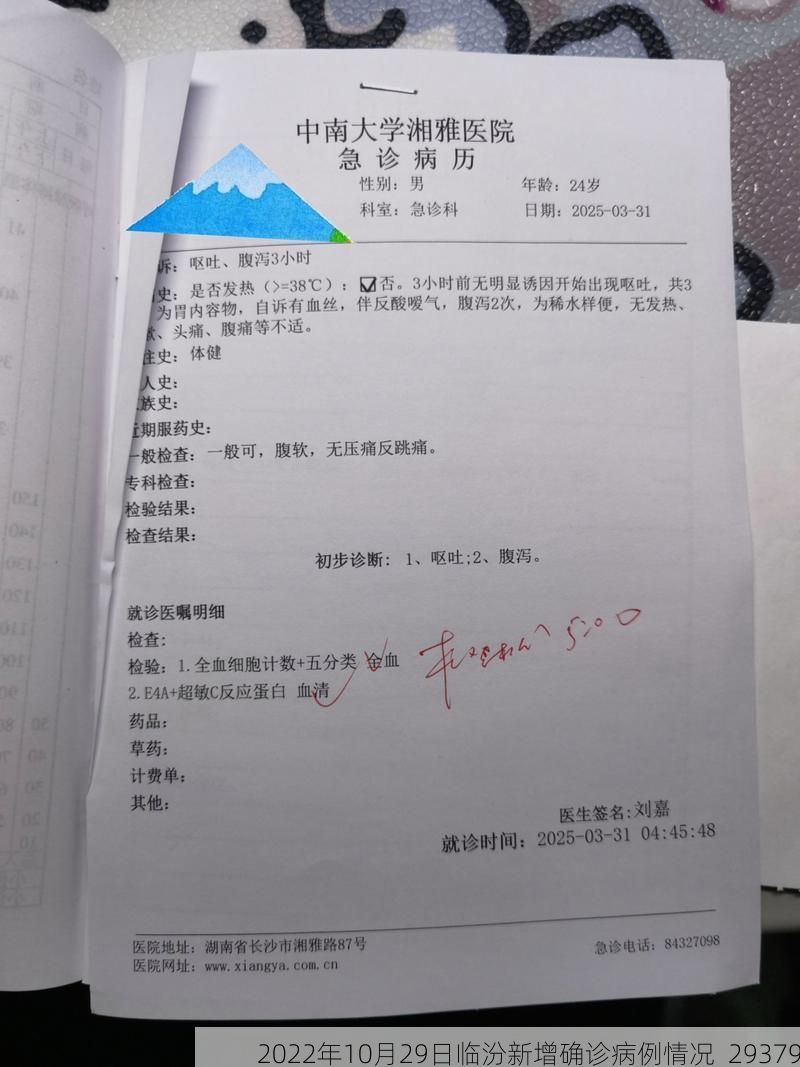 中南大学湘雅医院
急诊病历
性别: 男 年龄: 24岁
科室: 急诊科 日期: 2025-03-31
诉: 呕吐、腹泻3小时
史: 是否发热（>=38℃）: ☑否。3小时前无明显诱因开始出现呕吐，共3
为胃内容物，自诉有血丝，伴反酸嗳气，腹泻2次，为稀水样便，无发热、
、头痛、腹痛等不适。
往史: 体健
人史:
族史:
近期服药史:
一般检查: 一般可，腹软，无压痛反跳痛。
专科检查:
检验结果:
检查结果:
初步诊断: 1、呕吐;2、腹泻。
就诊医嘱明细
检查:
检验: 1.全血细胞计数+五分类 全血
2.E4A+超敏C反应蛋白 血清
5:00
药品:
草药:
计费单:
其他:
医生签名:刘嘉
就诊时间: 2025-03-31 04:45:48
医院地址: 湖南省长沙市湘雅路87号 急诊电话: 84327098
医院网址: www.xiangya.com.cn
2022年10月29日临汾新增确诊病例情况 29379